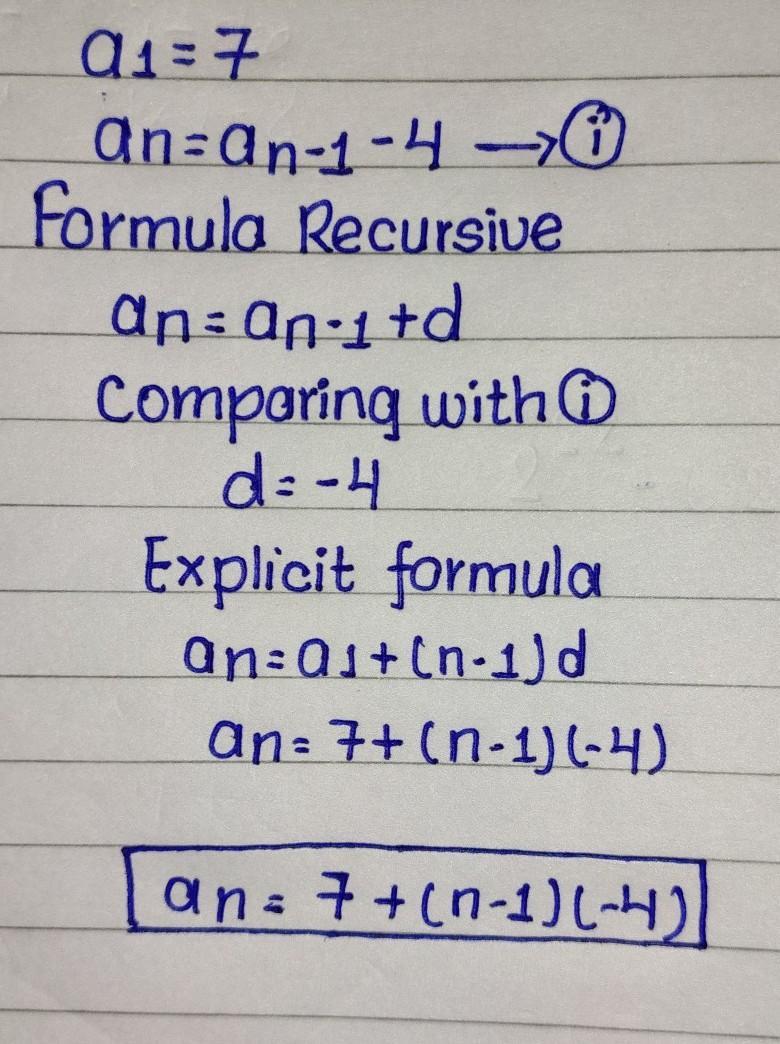 a1 = 7
an = an-1 - 4 → (i)
Formula Recursive
an = an-1 + d
Comparing with (i)
d = -4
Explicit formula
an = a1 + (n-1)d
an = 7 + (n-1)(-4)
an = 7 + (n-1)(-4)